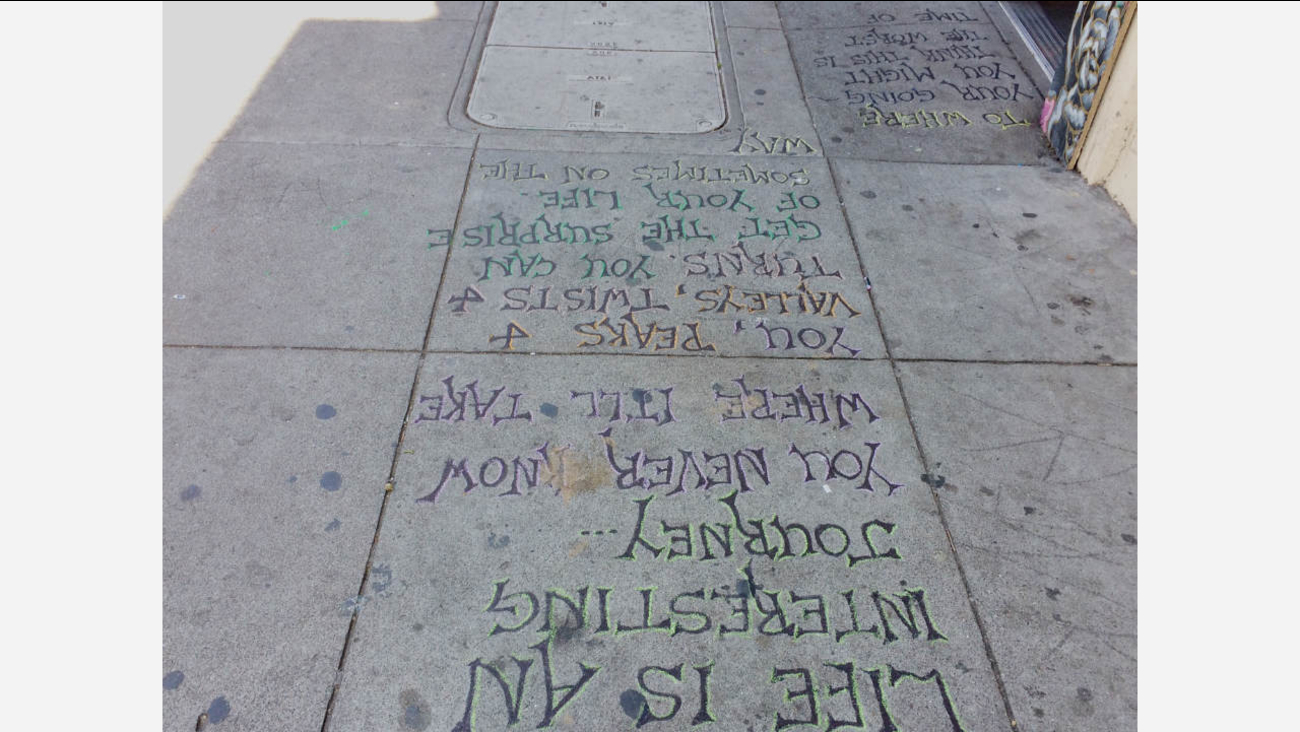 LIFE IS AN
INTERESTING
JOURNEY...
YOU NEVER KNOW
WHERE ITLL TAKE
YOU, PEAKS &
VALLEYS, TWISTS &
TURNS. YOU CAN
GET THE SURPRISE
OF YOUR LIFE.
SOMETIMES ON THE
WAY
TO WHERE
YOUR GOING
YOU MIGHT
THINK THIS IS
THE WORST
TIME OF
AT&T